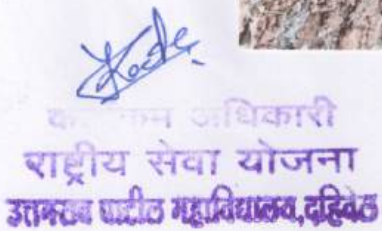 कार्यक्रम अधिकारी
राष्ट्रीय सेवा योजना
उत्तमराव पाटील महाविद्यालय, दहिवेल